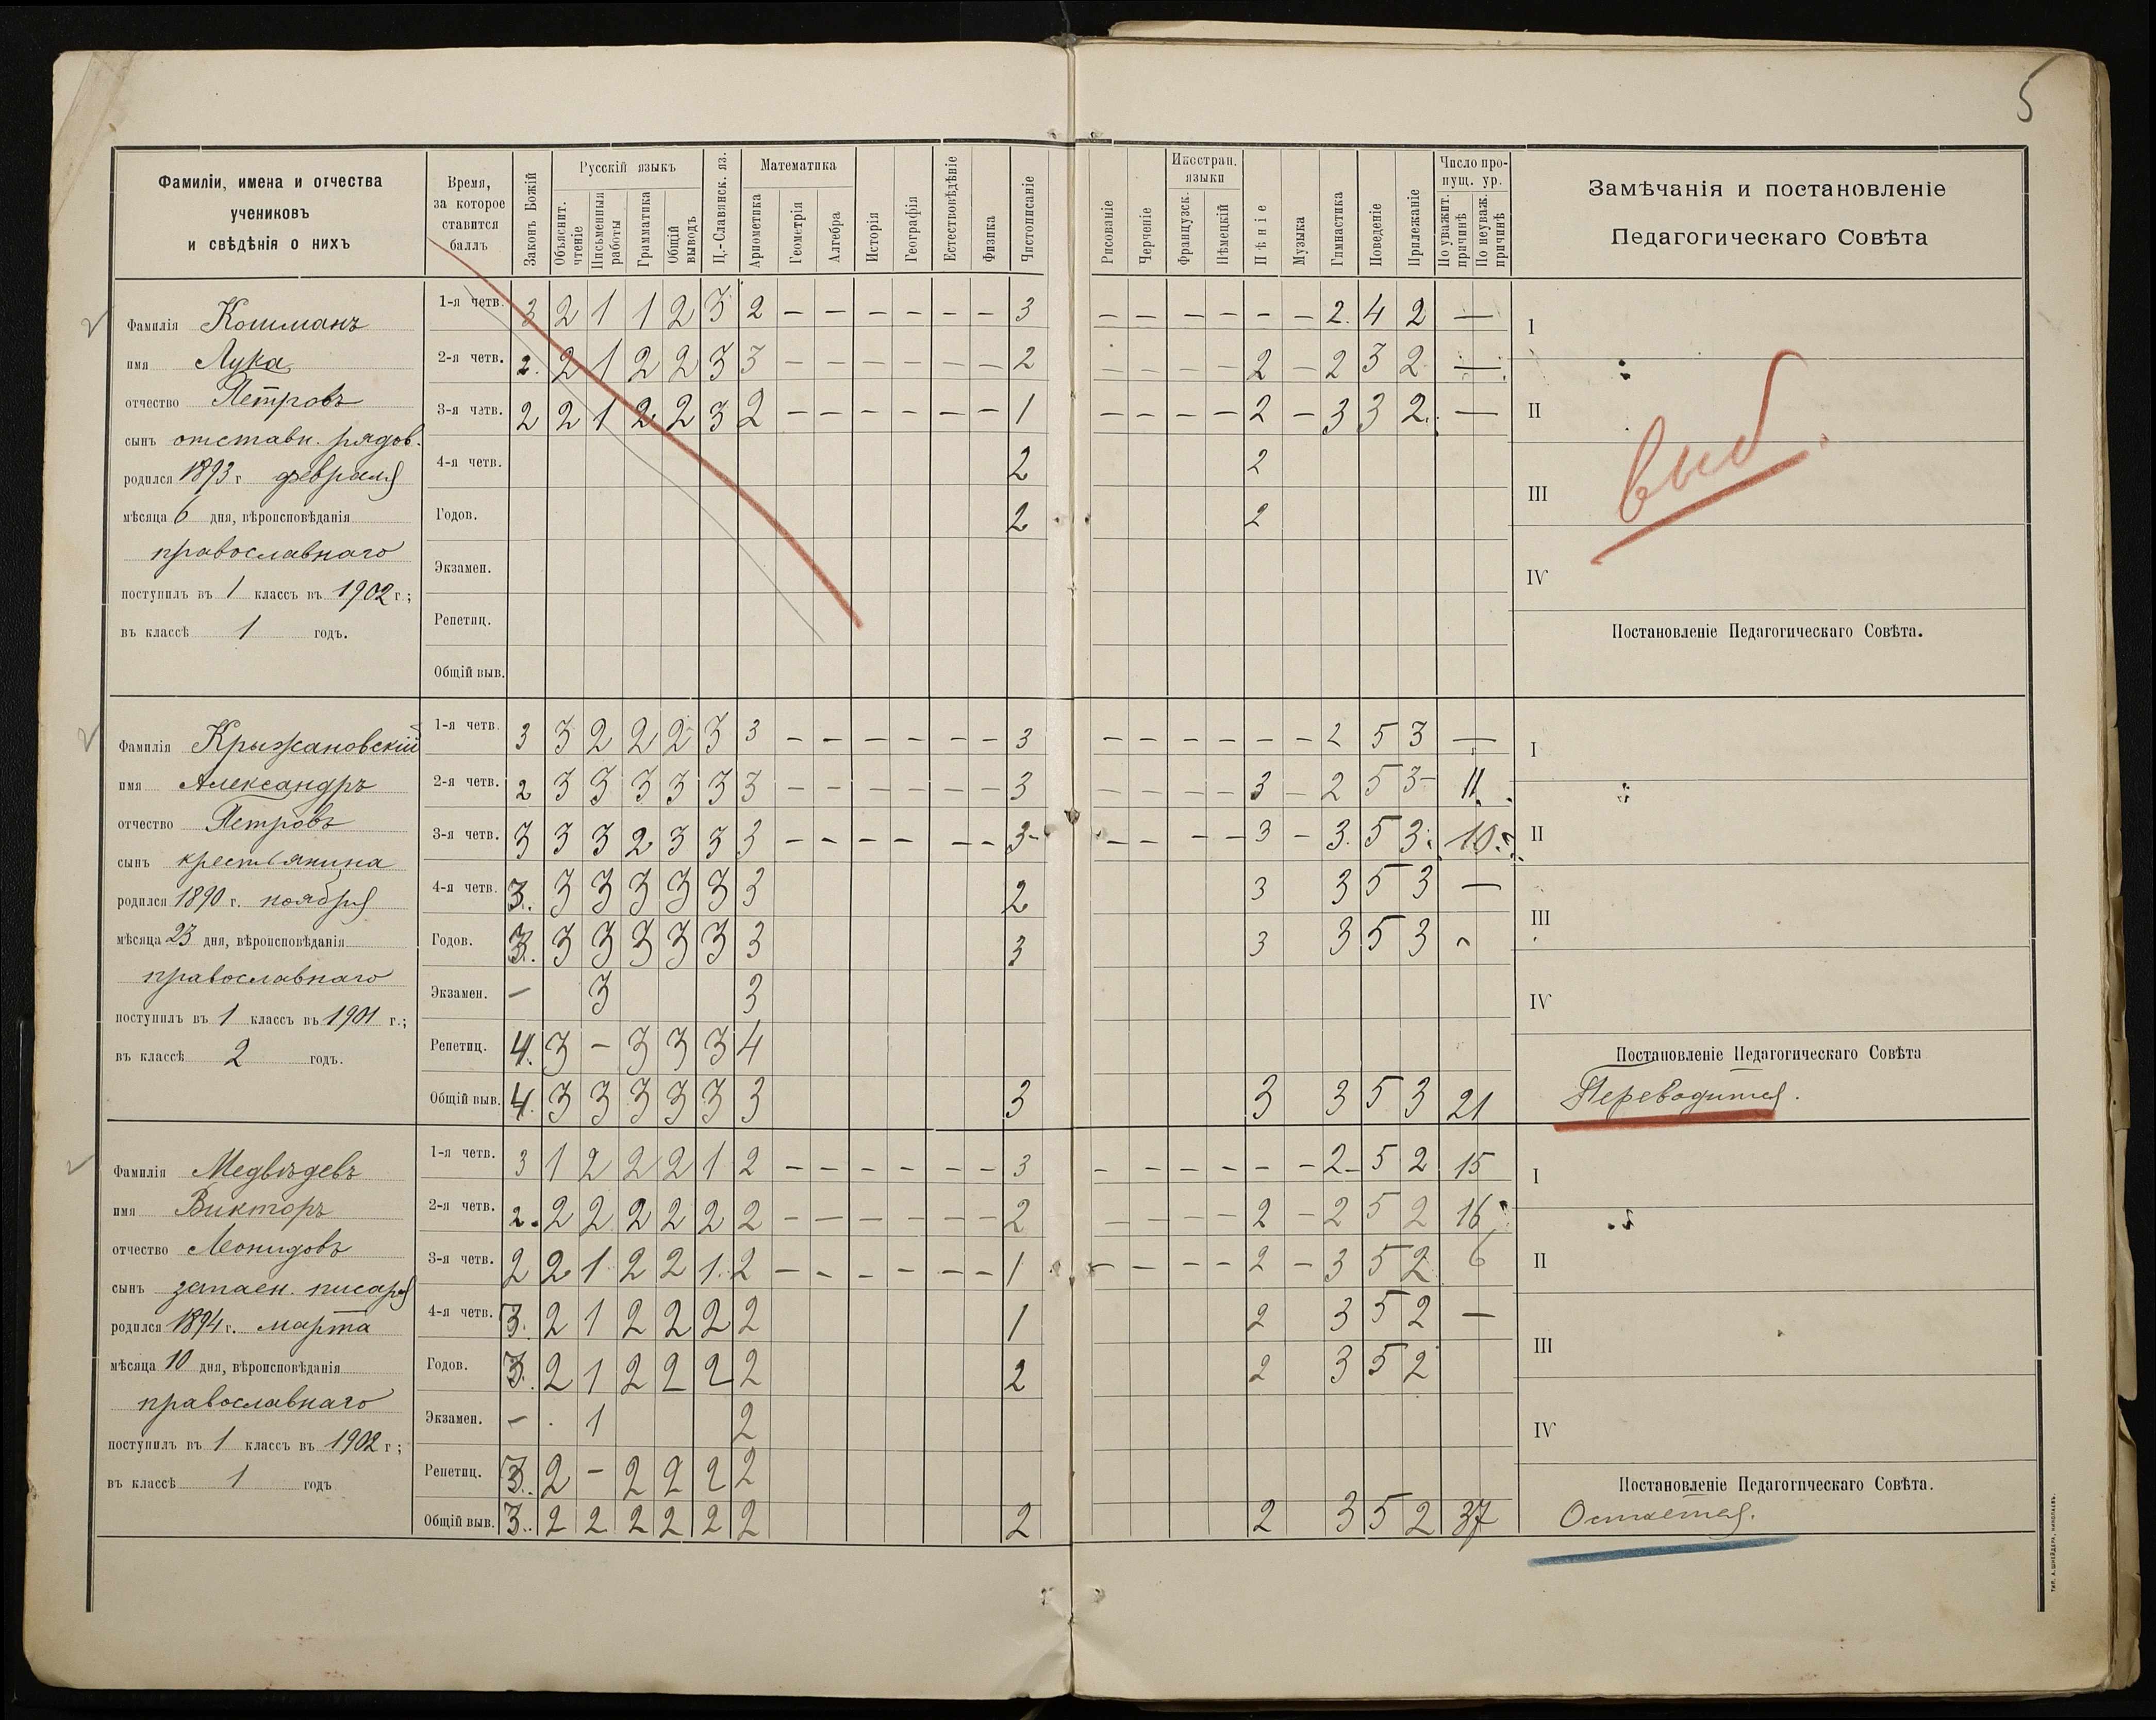 5
Фамиліи, имена и отчества
учениковъ
и свѣдѣнія о нихъ
Время,
за которое
ставится
баллъ
Законъ Божій
Русскій языкъ
Объяснит. чтеніе
Письменныя работы
Грамматика
Общій выводъ
Ц.-Славянск. яз.
Математика
Ариѳметика
Геометрія
Алгебра
Исторія
Географія
Естествовѣдѣніе
Физика
Чистописаніе
Рисованіе
Черченіе
Иностран. языки
Французск.
Нѣмецкій
Пѣніе
Музыка
Гимнастика
Поведеніе
Прилежаніе
Число пропущ. ур.
По уважит. причинѣ
По неуваж. причинѣ
Замѣчанія и постановленіе
Педагогическаго Совѣта
Фамилія Кошманъ
имя Лука
отчество Петровъ
сынъ отставн. рядов.
родился 1893 г февраля
мѣсяца 6 дня, вѣроисповѣданія
православнаго
поступилъ въ 1 классъ въ 1902 г;
въ классѣ 1 годъ.
1-я четв. 3 2 1 1 2 3 2 – – – – – – 3 – – – – – – 2. 4 2 —
2-я четв. 2. 2 1 2 2 3 3 – – – – – – 2 – – – – 2 – 2 3 2 —
3-я четв. 2 2 1 2 2 3 2 – – – – – – 1 – – – – 2 – 3 3 2. —
4-я четв. 2 2
Годов. 2 2
Экзамен.
Репетиц.
Общій выв.
I
II
III
IV
выб.
Постановленіе Педагогическаго Совѣта.
Фамилія Крыжановскій
имя Александръ
отчество Петровъ
сынъ крестьянина
родился 1890 г. ноября
мѣсяца 23 дня, вѣроисповѣданія
православнаго
поступилъ въ 1 классъ въ 1901 г.;
въ классѣ 2 годъ.
1-я четв. 3 3 2 2 2 3 3 – – – – – – 3 – – – – – – 2 5 3 —
2-я четв. 2 3 3 3 3 3 3 – – – – – – 3 – – – – 3 – 2 5 3– 11.
3-я четв. 3 3 3 2 3 3 3 – – – – – – 3– – – – – 3 – 3. 5 3. 10.
4-я четв. 3. 3 3 3 3 3 3 2 3 3 5 3 —
Годов. 3. 3 3 3 3 3 3 3 3 3 5 3
Экзамен. – 3 3
Репетиц. 4. 3 – 3 3 3 4
Общій выв. 4. 3 3 3 3 3 3 3 3 3 5 3 21
I
II
III
IV
Постановленіе Педагогическаго Совѣта
Переводится.
Фамилія Медвѣдевъ
имя Викторъ
отчество Леонидовъ
сынъ запасн. писаря
родился 1894 г. марта
мѣсяца 10 дня, вѣроисповѣданія
православнаго
поступилъ въ 1 классъ въ 1902 г;
въ классѣ 1 годъ
1-я четв. 3 1 2 2 2 1 2 – – – – – – 3 – – – – – – 2– 5 2 15
2-я четв. 2. 2 2 2 2 2 2 – – – – – – 2 – – – – 2 – 2 5 2 16
3-я четв. 2 2 1 2 2 1. 2 – – – – – – 1 – – – – 2 – 3 5 2 6
4-я четв. 3. 2 1 2 2 2 2 1 2 3 5 2 —
Годов. 3. 2 1 2 2 2 2 2 2 3 5 2
Экзамен. – 1 2
Репетиц. 3. 2 – 2 2 2 2
Общій выв. 3. 2 2 2 2 2 2 2 2 3 5 2 37
I
II
III
IV
Постановленіе Педагогическаго Совѣта.
Остается.
ТИП. А. ШНЕЙДЕРА, НИКОЛАЕВЪ.